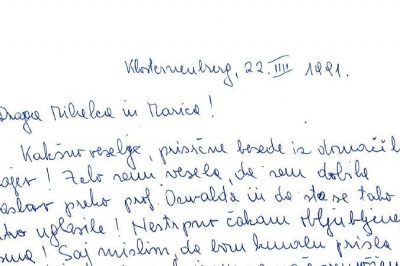 Klosterneuburg, 22. IIII 1991.
Draga Mihelca in Marica!
Kakšno veselje, prisrčne besede iz domačih
krajev! Zelo sem vesela, da sem dobila
naslov preko prof. Oswalda in da sta se tako
uglasile! Nestrpno čakam obljubljena
Saj mislim, da bom kmalu prišla